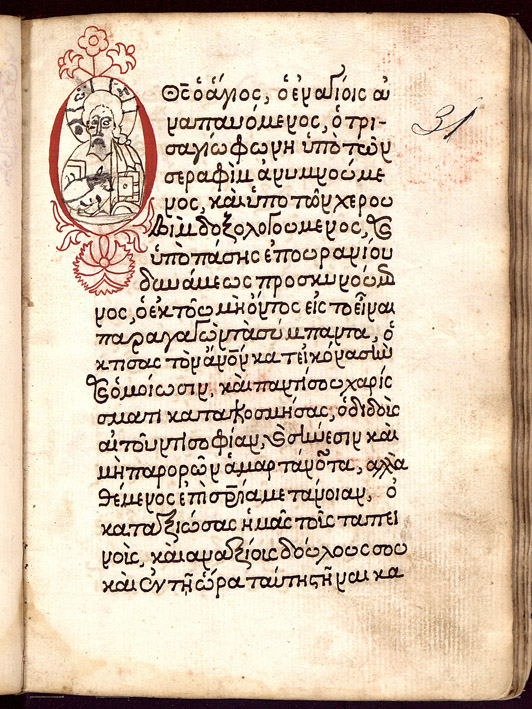 Ὁ Θς ὁ ἅγιος, ὁ ἐν ἁγίοις ἀ
ναπαυόμενος, ὁ τρι-
σαγίω φωνῆ ὑπο τῶν
σεραφὶμ ἀνυμνούμε
νος, καὶ ὑπο τῶν χερου
βὶμ δοξολογούμενος, καὶ
ὑπὸ πάσης ἐπουρανίου
δυνάμεως προσκυνούμε
νος, ὁ ἐκ τοῦ μὴ ὄντος εἰς τὸ εἶναι
παραγαγὼν τὰ σύμπαντα, ὁ
κτίσας τὸν ἄνον κατ εἰκόνα σὴν
καὶ ὁμοίωσιν, καὶ παντί σου χαρίς
σματι κατακοσμήσας, ὁ διδοὺς
αἰτοῦντι σοφίαν, καὶ σύνεσιν καὶ
μὴ παρορῶν ἁμαρτάνοντα, ἀλλὰ
θέμενος ἐπὶ σρία μετάνοιαν, ὁ
καταξιώσας ἡμᾶς τοὺς ταπει
νοὺς, καὶ αναξίους δούλους σου
καὶ ἐν τῆ ὥρα ταύτη στῆναι κα
31